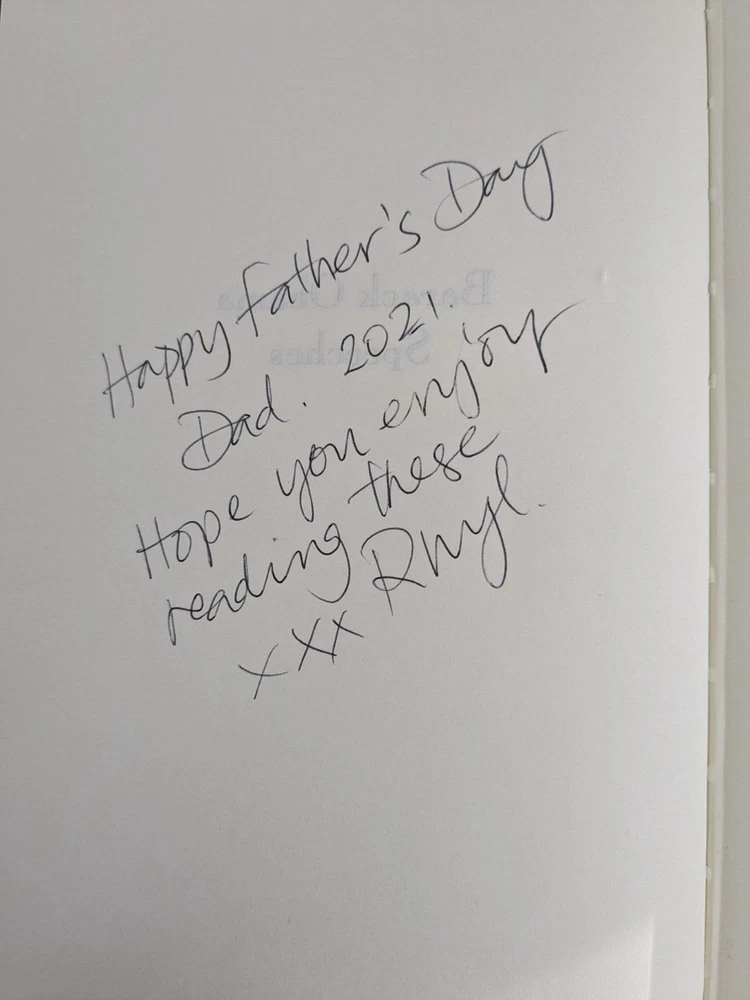 Happy Father's Day
Dad. 2021.
Hope you enjoy
reading these
xxx Rhyl.
Barack Obama
Speeches